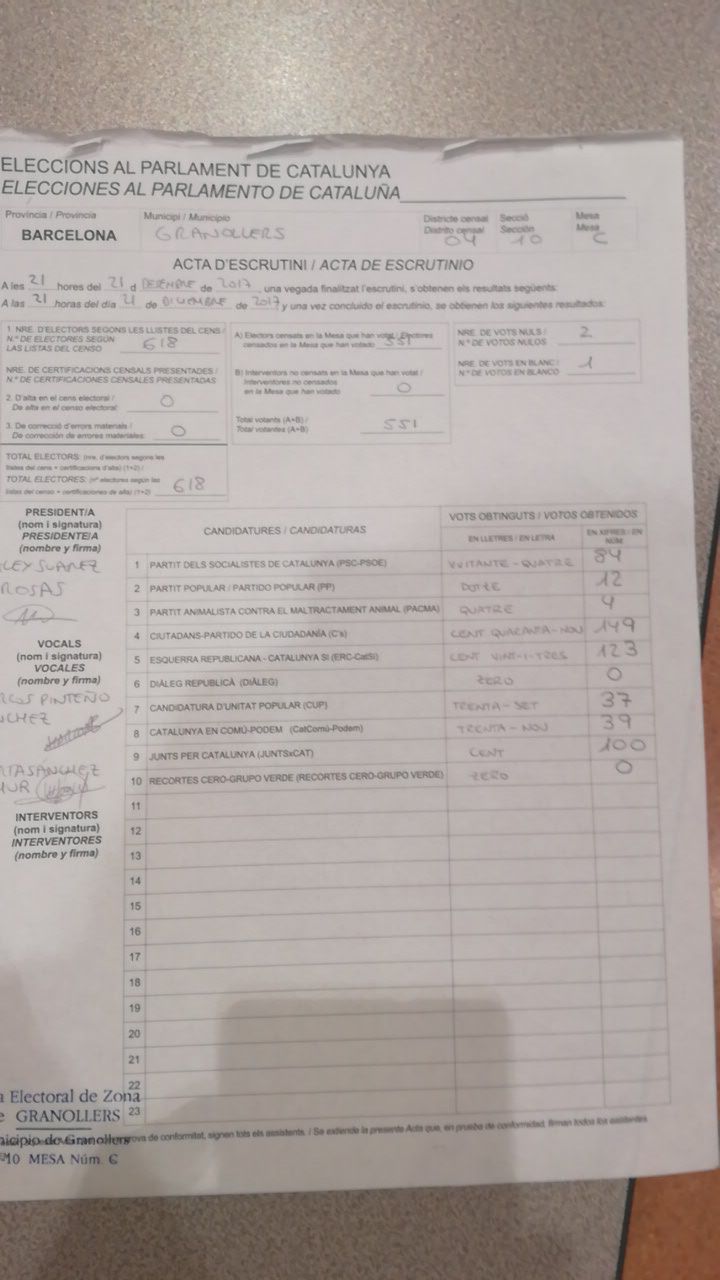 ELECCIONS AL PARLAMENT DE CATALUNYA
ELECCIONES AL PARLAMENTO DE CATALUÑA
Província / Provincia
BARCELONA
Municipi / Municipio
GRANOLLERS
Districte censal
Distrito censal
04
Secció
Sección
10
Mesa
Mesa
C
ACTA D'ESCRUTINI / ACTA DE ESCRUTINIO
A les 21 hores del 21 d DESEMBRE de 2017, una vegada finalitzat l'escrutini, s'obtenen els resultats següents:
A las 21 horas del día 21 de DICIEMBRE de 2017 y una vez concluido el escrutinio, se obtienen los siguientes resultados:
1. NRE. D'ELECTORS SEGONS LES LLISTES DEL CENS /
N.º DE ELECTORES SEGÚN
LAS LISTAS DEL CENSO 618
NRE. DE CERTIFICACIONS CENSALS PRESENTADES /
N.º DE CERTIFICACIONES CENSALES PRESENTADAS
2. D'alta en el cens electoral /
De alta en el censo electoral: 0
3. De correcció d'errors materials /
De corrección de errores materiales: 0
TOTAL ELECTORS: (nre. d'electors segons les
llistes del cens + certificacions d'alta) (1+2) /
TOTAL ELECTORES: (nº electores según las
listas del censo + certificaciones de alta) (1+2) 618
A) Electors censats en la Mesa que han votat / Electores
censados en la Mesa que han votado 551
B) Interventors no censats en la Mesa que han votat /
Interventores no censados
en la Mesa que han votado 0
Total votants (A+B) /
Total votantes (A+B) 551
NRE. DE VOTS NULS /
N.º DE VOTOS NULOS 2
NRE. DE VOTS EN BLANC /
N.º DE VOTOS EN BLANCO 1
PRESIDENT/A
(nom i signatura)
PRESIDENTE/A
(nombre y firma)
LEY SUAREZ
ROSAS
VOCALS
(nom i signatura)
VOCALES
(nombre y firma)
RCOS PINTEÑO
NCHEZ
TASANCHEZ
INTERVENTORS
(nom i signatura)
INTERVENTORES
(nombre y firma)
CANDIDATURES / CANDIDATURAS
VOTS OBTINGUTS / VOTOS OBTENIDOS
EN LLETRES / EN LETRA
EN XIFRES / EN NÚM.
1 PARTIT DELS SOCIALISTES DE CATALUNYA (PSC-PSOE) VUITANTE-QUATRE 84
2 PARTIT POPULAR / PARTIDO POPULAR (PP) DOTZE 12
3 PARTIT ANIMALISTA CONTRA EL MALTRACTAMENT ANIMAL (PACMA) QUATRE 4
4 CIUTADANS-PARTIDO DE LA CIUDADANÍA (C's) CENT QUARANTA-NOU 149
5 ESQUERRA REPUBLICANA - CATALUNYA SÍ (ERC-CatSí) CENT VINT-I-TRES 123
6 DIÀLEG REPUBLICÀ (DIÀLEG) ZERO 0
7 CANDIDATURA D'UNITAT POPULAR (CUP) TRENTA-SET 37
8 CATALUNYA EN COMÚ-PODEM (CatComú-Podem) TRENTA-NOU 39
9 JUNTS PER CATALUNYA (JUNTSxCAT) CENT 100
10 RECORTES CERO-GRUPO VERDE (RECORTES CERO-GRUPO VERDE) ZERO 0
11
12
13
14
15
16
17
18
19
20
21
22
23
a Electoral de Zona
e GRANOLLERS
nicipio de Granollers
10 MESA Núm. C
prova de conformitat, signen tots els assistents. / Se extiende la presente Acta que, en prueba de conformidad, firman todos los asistentes